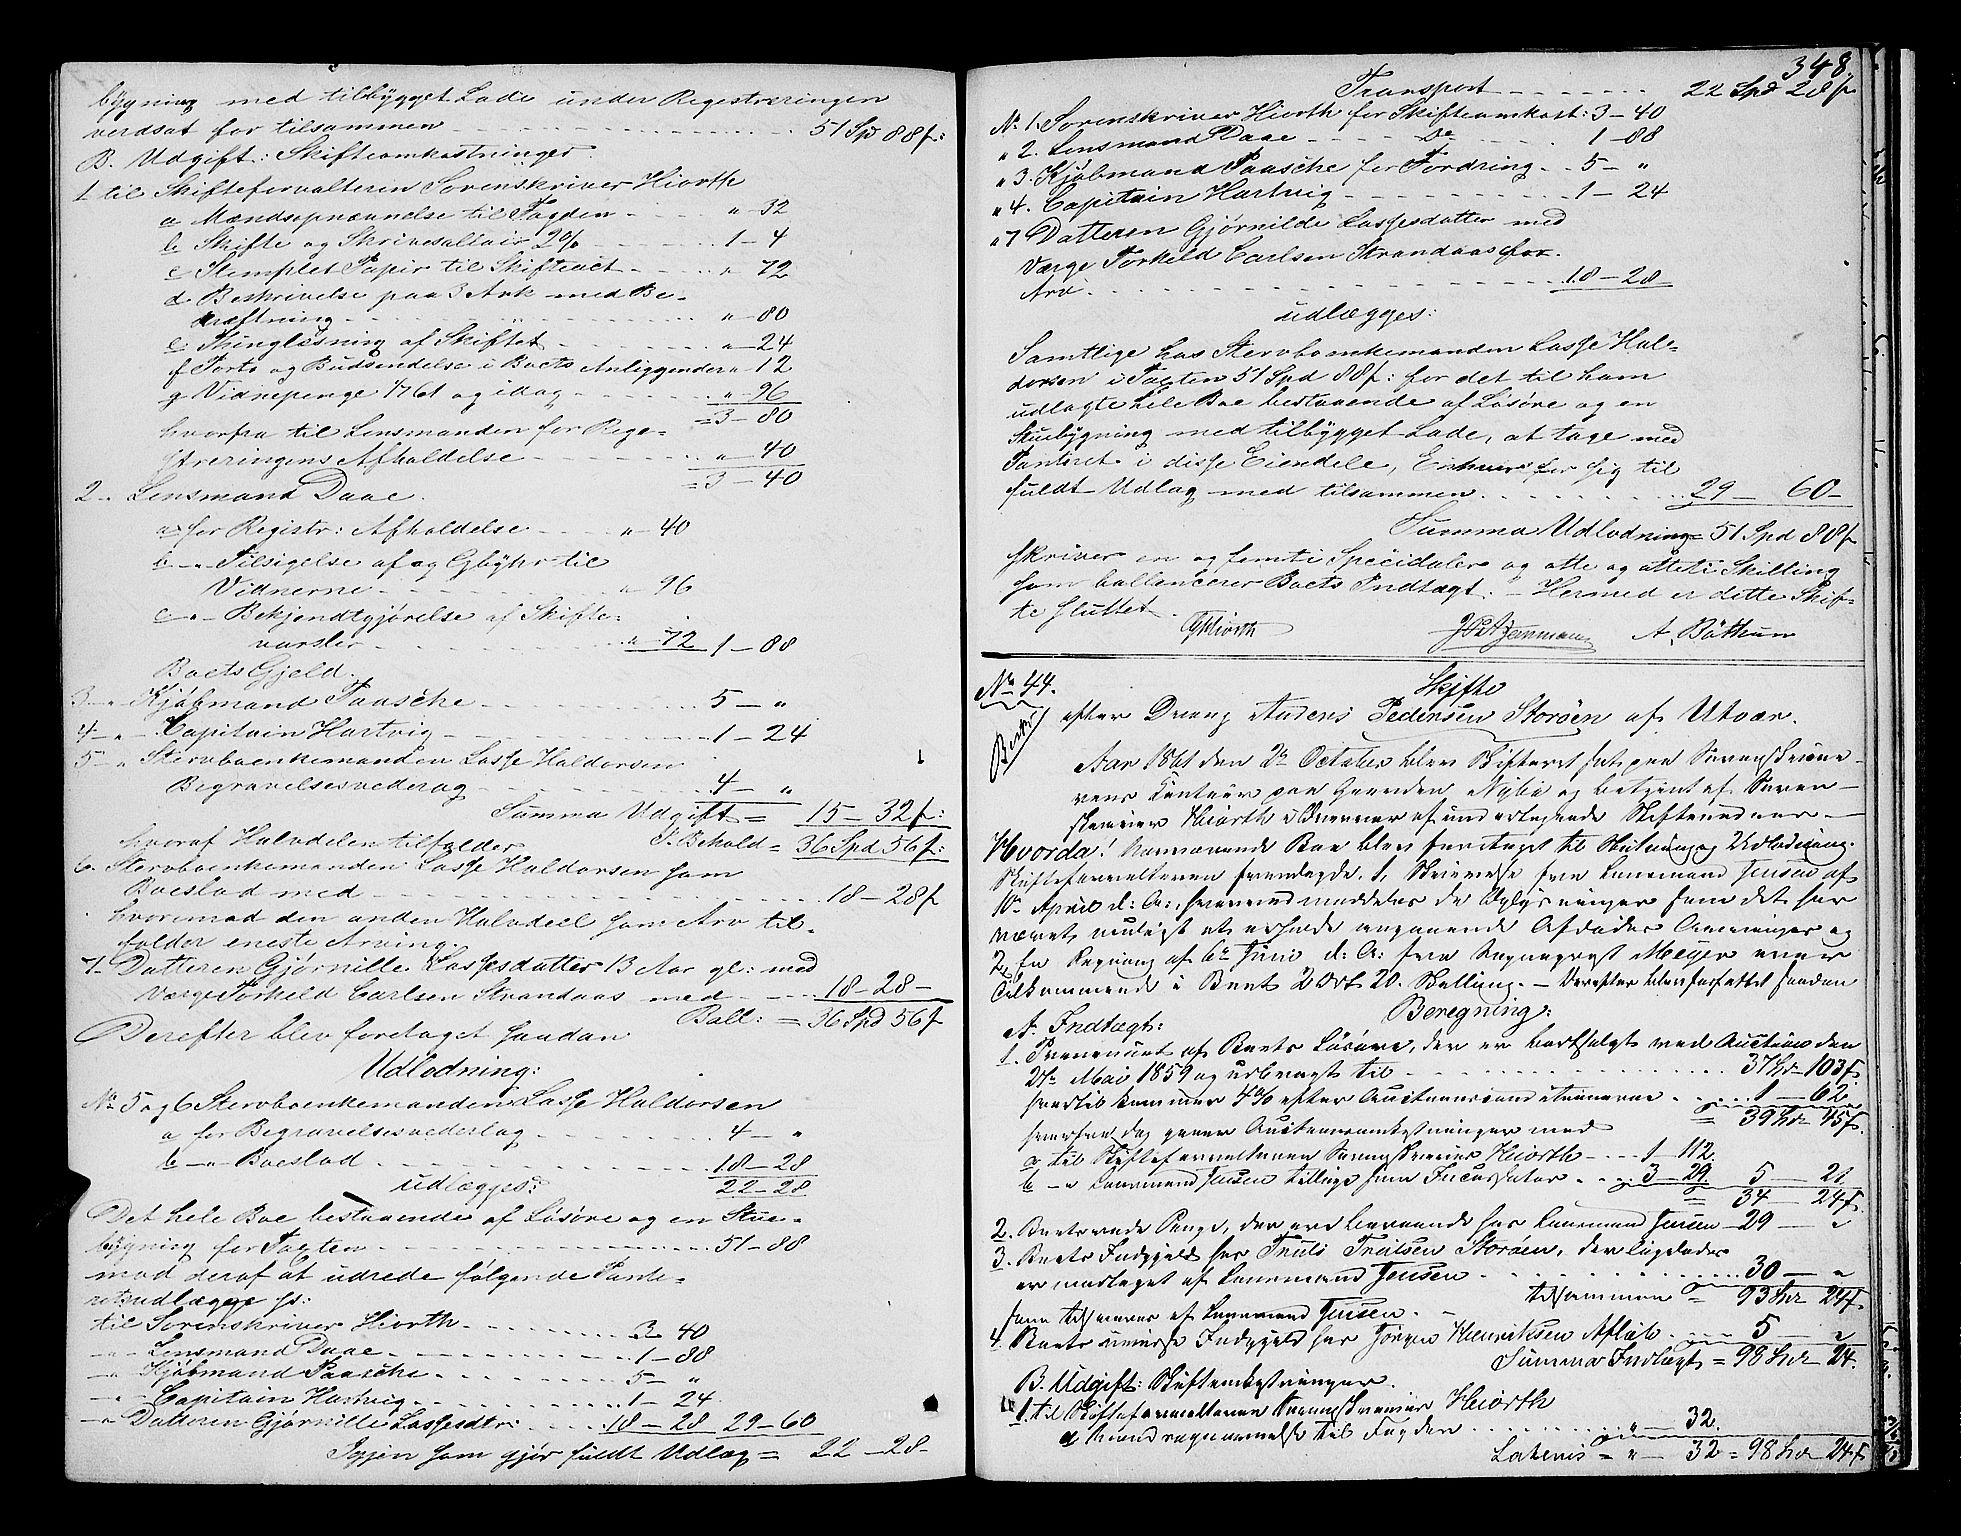 bygning med tilbygget Lade under Registreringen
verdsat for tilsammen 51 Spd 88 ſ:
B. Udgift: Skifteomkostninger.
1 til Skifteforvalteren Sorenskriver Hiorth
a Mændsopnævnelse til Fogden " - 32
b Skifte og Skriversallair 2% 1 - 4
c Stemplet Papir til Skifteact " - 72
d Beskrivelse paa 3 Ark med Be-
kræftning " - 80
e Thinglæsning af Skiftet " - 24
f Porto og Budsendelse i Boets Anliggender " - 12
g Vidnepenge 1/7 61 og idag " - 96
= 3 - 80
hvorfra til Lensmanden for Regi-
streringens Afholdelse " - 40
= 3 - 40
2 " Lensmand Daae.
a for Registr: Afholdelse " - 40
b - " - Tilsigelse af og Gebyhr til
Vidnerne " - 96
c - " - Bekjendtgjørelse af Skifte-
varsler " - 72 1 - 88
Boets Gjeld.
3 - " Kjøbmand Paasche 5 - "
4 - " Capitain Hartvig 1 - 24
5 - " Stervboenkemanden Lasse Haldorsen
Begravelsesvederlag 4 - "
Summa Udgift = 15 - 32 ſ:
S. Behold = 36 Spd 56 ſ:
hvoraf Halvdelen tilfalder
6. Stervboenkemanden Lasse Haldorsen som
Boeslod med 18 - 28 ſ
hvorimod den anden Halvdeel som Arv til-
falder eneste Arving.
7 - Datteren Gjørnille Lassesdatter 13 Aar gl: med
Værge Torkeld Carlsen Strandaas med 18 - 28 -
Ball: = 36 Spd 56 ſ
Derefter blev foretaget saadan
Udlodning:
No 5 og 6 Stervboenkemanden Lasse Haldorsen
a for Begravelsesvederlag 4 - "
b - " - Boeslod 18 - 28
udlægges: 22 - 28
Det hele Boe bestaaende af Løsøre og en Stue-
bygning for Taxten 51 - 88
mod deraf at udrede følgende Pante-
retsudlægge
til Sorenskriver Hiorth 3 40
- " - Lensmand Daae 1 - 88
- " Kjøbmand Paasche 5 - "
- " - Capitain Hartvig 1 - 24
- " Datteren Gjørnille Lassesdtr: 18 - 28 29 - 60
Igjen som gjør fuldt Udlæg = 22 - 28 -
348.
Transport 22 Spd 28 ſ
No 1. Sorenskriver Hiorth for Skifteomkost: 3 - 40
" 2. Lensmand Daae Do 1 - 88
" 3. Kjøbmand Paasche for Fordring 5 - "
" 4. Capitain Hartvig 1 - 24
" 7 Datteren Gjørnilde Lassesdatter med
Værge Torkeld Carlsen Strandaas for
Arv 18 - 28
udlægges:
Samtlige hos Stervboenkemanden Lasse Hal-
dorsen i Taxten 51 Spd 88 ſ: for det til ham
udlagte hele Boe bestaaende af Løsøre og en
Stuebygning med tilbygget Lade, at tage med
Panteret i disse Eiendele, Enhver for sig til
fuldt Udlæg med tilsammen 29 - 60 -
Summa Udlodning = 51 Spd 88 ſ
skriver en og femti Specidaler og otte og otteti Skilling
som ballancerer Boets Indtægt. - Hermed er dette Skif-
te sluttet.
Hiorth A. Bøthun
No 44.
Skifte
efter Dreng Anders Pedersen Storøen af Utvær.
Aar 1861 den 2de October blev Skifteret sat paa Sorenskri-
verens Contoir paa Gaarden Nybø og betjent af Soren-
skriver Hiorth i Overvær af undertegnede Skiftevidner. -
Hvorda! nærværende Boe blev foretaget til Slutning og Udlodning.
Skifteforvalteren fremlagde, 1, Skrivelse fra Lensmand Jensen af
10de April d: A:, hvorved meddeles de Oplysninger som det har
været muligt at erholde angaaende Afdødes Arvinger og
2, En Regning af 6te Juni d: A: fra Sogneprest Meyer over
Tilkommende i Boet 2 Ort 20 Skilling. - Derefter blev forfattet saadan
Beregning:
A. Indtægt:
1. Provenuet af Boets Løsøre, der er bortsolgt ved Auction den
24de Mai 1859 og udbragt til 37 Spd - 103 ſ.
hvortil kommer 4% efter Auctionsconditionerne 1 - 62
= 39 Spd - 45 ſ.
hvorfra dog gaaer Auctionsomkostninger med
a til Skifteforvalteren Sorenskriver Hiorth 1 - 112.
b - " Lensmand Jensen tillige som Incassator 3 - 29. 5 - 21
= 34 - 24 ſ.
2. Boets rede Penge, der ere beroende hos Lensmand Jensen 29 - "
3. Boets Indgjeld hos Truls Trulsen Storøen, der ligeledes
er modtaget af Lensmand Jensen 30 - "
tilsammen = 93 Spd 24 ſ.
som tilsvares af Lensmand Jensen. -
4. Boets uvisse Indgjeld hos Jørgen Henriksen Afløb 5 - "
Summa Indtægt = 98 Spd - 24.
B. Udgift: Skifteomkostninger.
1. til Skifteforvalteren Sorenskriver Hiorth
a Mændsopnævnelse til Fogden " - 32.
Lateris = " - 32 = 98 Spd 24 ſ